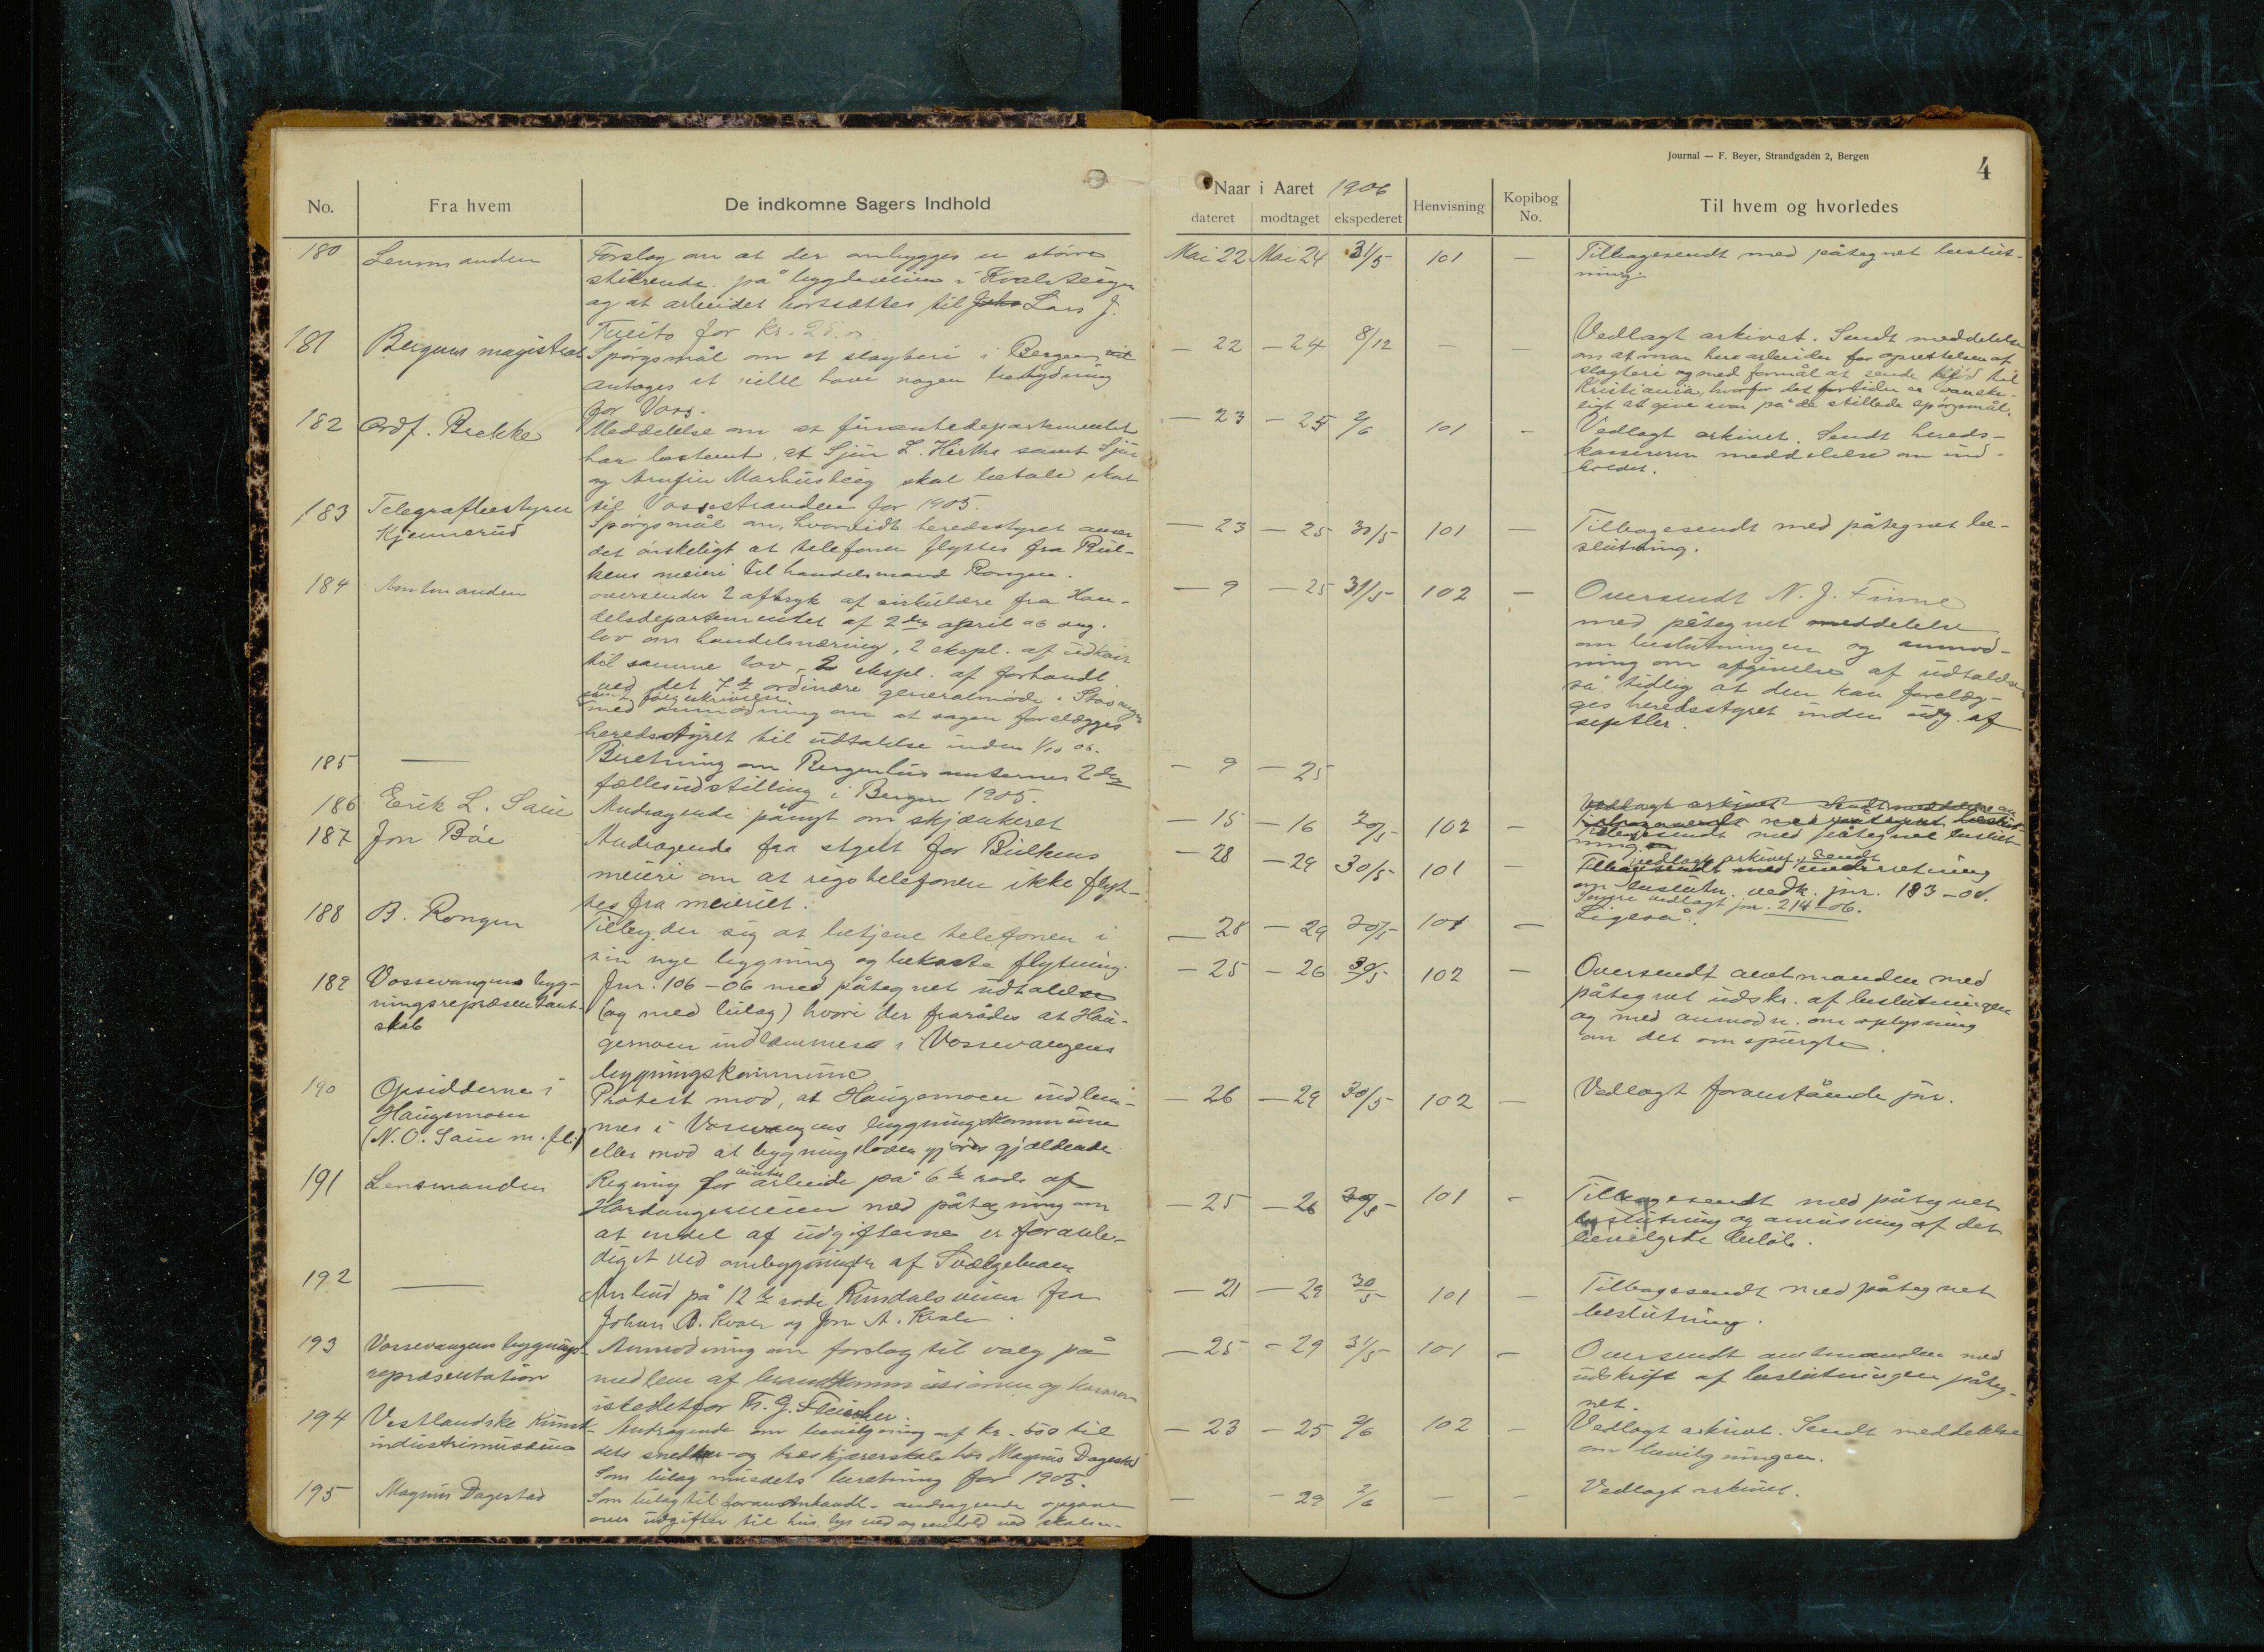 Journal — F. Beyer, Strandgaden 2, Bergen
4
No.
Fra hvem
De indkomne Sagers Indhold
Naar i Aaret 1906
dateret
modtaget
ekspederet
Henvisning
Kopibog No.
Til hvem og hvorledes
180
Lensmanden
Forslag om at der ombygges en større
stikrende på bygdeveien i
og at arbeidet bortsættes til Lars J.
Tveito for kr. 25.
Mai 22 Mai 24 31/5 101 —
Tilbagesendt med påtegnet beslut-
ning.
181
Bergens magistrat
Spørgsmål om et slagteri i Bergen
antages at ville have nogen betydning
for Voss.
— 22 — 24 8/12 — —
Vedlagt arkivet. Sendt meddelelse
om at man her arbeider for oprettelsen af
slagteri og med formål at sende kjød til
Kristiania, hvorfor det for tiden er vanske-
ligt at give svar på de stillede spørgsmål.
182
Ordf. Brekke
Meddelelse om at finantsdepartementet
har bestemt, at Sjur L. Herthe samt Sjur
og Arnfin Marhusteig skal betale skat
til Vossestranden for 1905.
— 23 — 25 2/6 101 —
Vedlagt arkivet. Sendt hereds-
kassereren meddelelse om ind-
holdet.
183
Telegrafbestyrer
Kjennerud
Spørgsmål om, hvorvidt heredsstyret anser
det ønskeligt at telefonen flyttes fra Bul-
kens meieri til handelsmand Rongen.
— 23 — 25 30/5 101 —
Tilbagesendt med påtegnet be-
slutning.
184
Amtmanden
oversender 2 aftryk af cirkulære fra Han-
delsdepartementet af 2den april 06 ang.
lov om handelsnæring, 2 expl. af udkast
til samme lov, 2 ekspl. af forhandl
ved det 7de ordinære generalmøde i Stavanger
samt følgeskrivelse
med anmodning om at sagen forelægges
heredsstyret til udtalelse inden 1/10 06.
— 9 — 25 31/5 102 —
Oversendt N. J. Finne
med påtegnet meddelelse
om beslutningen og anmod-
ning om afgivelse af udtalelse
så tidlig at den kan forelæg-
ges heredsstyret inden udg. af
septbr.
185
—
Beretning om Bergenhus amternes 2den
fællesudstilling i Bergen 1905.
— 9 — 25
186
Erik L. Saue
Andragende pånyt om skjænkeret
— 15 — 16 30/5 102 —
Vedlagt arkivet Sendt meddelelse om
Tilbagesendt med påtegnet beslut-
ning.
187
Jon Bøe
Andragende fra styret for Bulkens
meieri om at rigstelefonen ikke flyt-
tes fra meieriet.
— 28 — 29 30/5 101 —
vedlagt arkivet, Sendt
Tilbagesendt med underretning
om beslutn. vedk. jnr. 183–06.
Senere vedlagt jnr. 214–06.
188
B. Rongen
Tilbyder sig at betjene telefonen i
sin nye bygning og bekoste flytning.
— 28 — 29 30/5 101 —
Ligeså.
189
Vossevangens byg-
ningsrepræsentant-
skab
Jnr. 106–06 med påtegnet udtalelse
(og med bilag) hvori der frarådes at Hau-
gamoen indlemmes i Vossevangens
bygningskommune
— 25 — 26 30/5 102 —
Oversendt amtmanden med
påtegnet udskr. af beslutningen
og med anmodn. om oplysning
om det omspurgte.
190
Opsidderne i
Haugamoen
(N. O. Saue m. fl.)
Protest mod, at Haugamoen indlem-
mes i Vossevangens bygningskommune
eller mod at bygningsloven gjøres gjældende
— 26 — 29 30/5 102 —
Vedlagt foranstående jnr.
191
Lensmanden
Regning for vinterarbeide på 6te rode af
Hardangerveien med påtegning om
at endel af udgifterne er foranle-
diget ved ombygningen af
— 25 — 26 30/5 101 —
Tilbagesendt med påtegnet
beslutning og anvisning af det
bevilgede beløb.
192
—
Anbud på 12te rode Rundalsveien fra
Johan B. Kvale og Jon A. Kvale
— 21 — 29 30/5 101 —
Tilbagesendt med påtegnet
beslutning.
193
Vossevangens bygnings-
repræsentation
Anmodning om forslag til valg på
medlem af brandkommissionen og havare
istedetfor Th. G. Fleischer.
— 25 — 29 31/5 101 —
Oversendt amtmanden med
udskrift af beslutningen påteg-
net.
194
Vestlandske Kunst-
industrimuseum
Andragende om bevilgning af kr. 500 til
dets snekker- og træskjærerskole hos Magnus Dagestad
Som bilag museets beretning for 1905.
— 23 — 25 2/6 102 —
Vedlagt arkivet. Sendt meddelelse
om bevilgningen.
195
Magnus Dagestad
Som bilag til foranstnævte andragende opgave
over udgifter til hus, lys ved og renhold ved skolen.
— — 29 2/6 — —
Vedlagt arkivet.